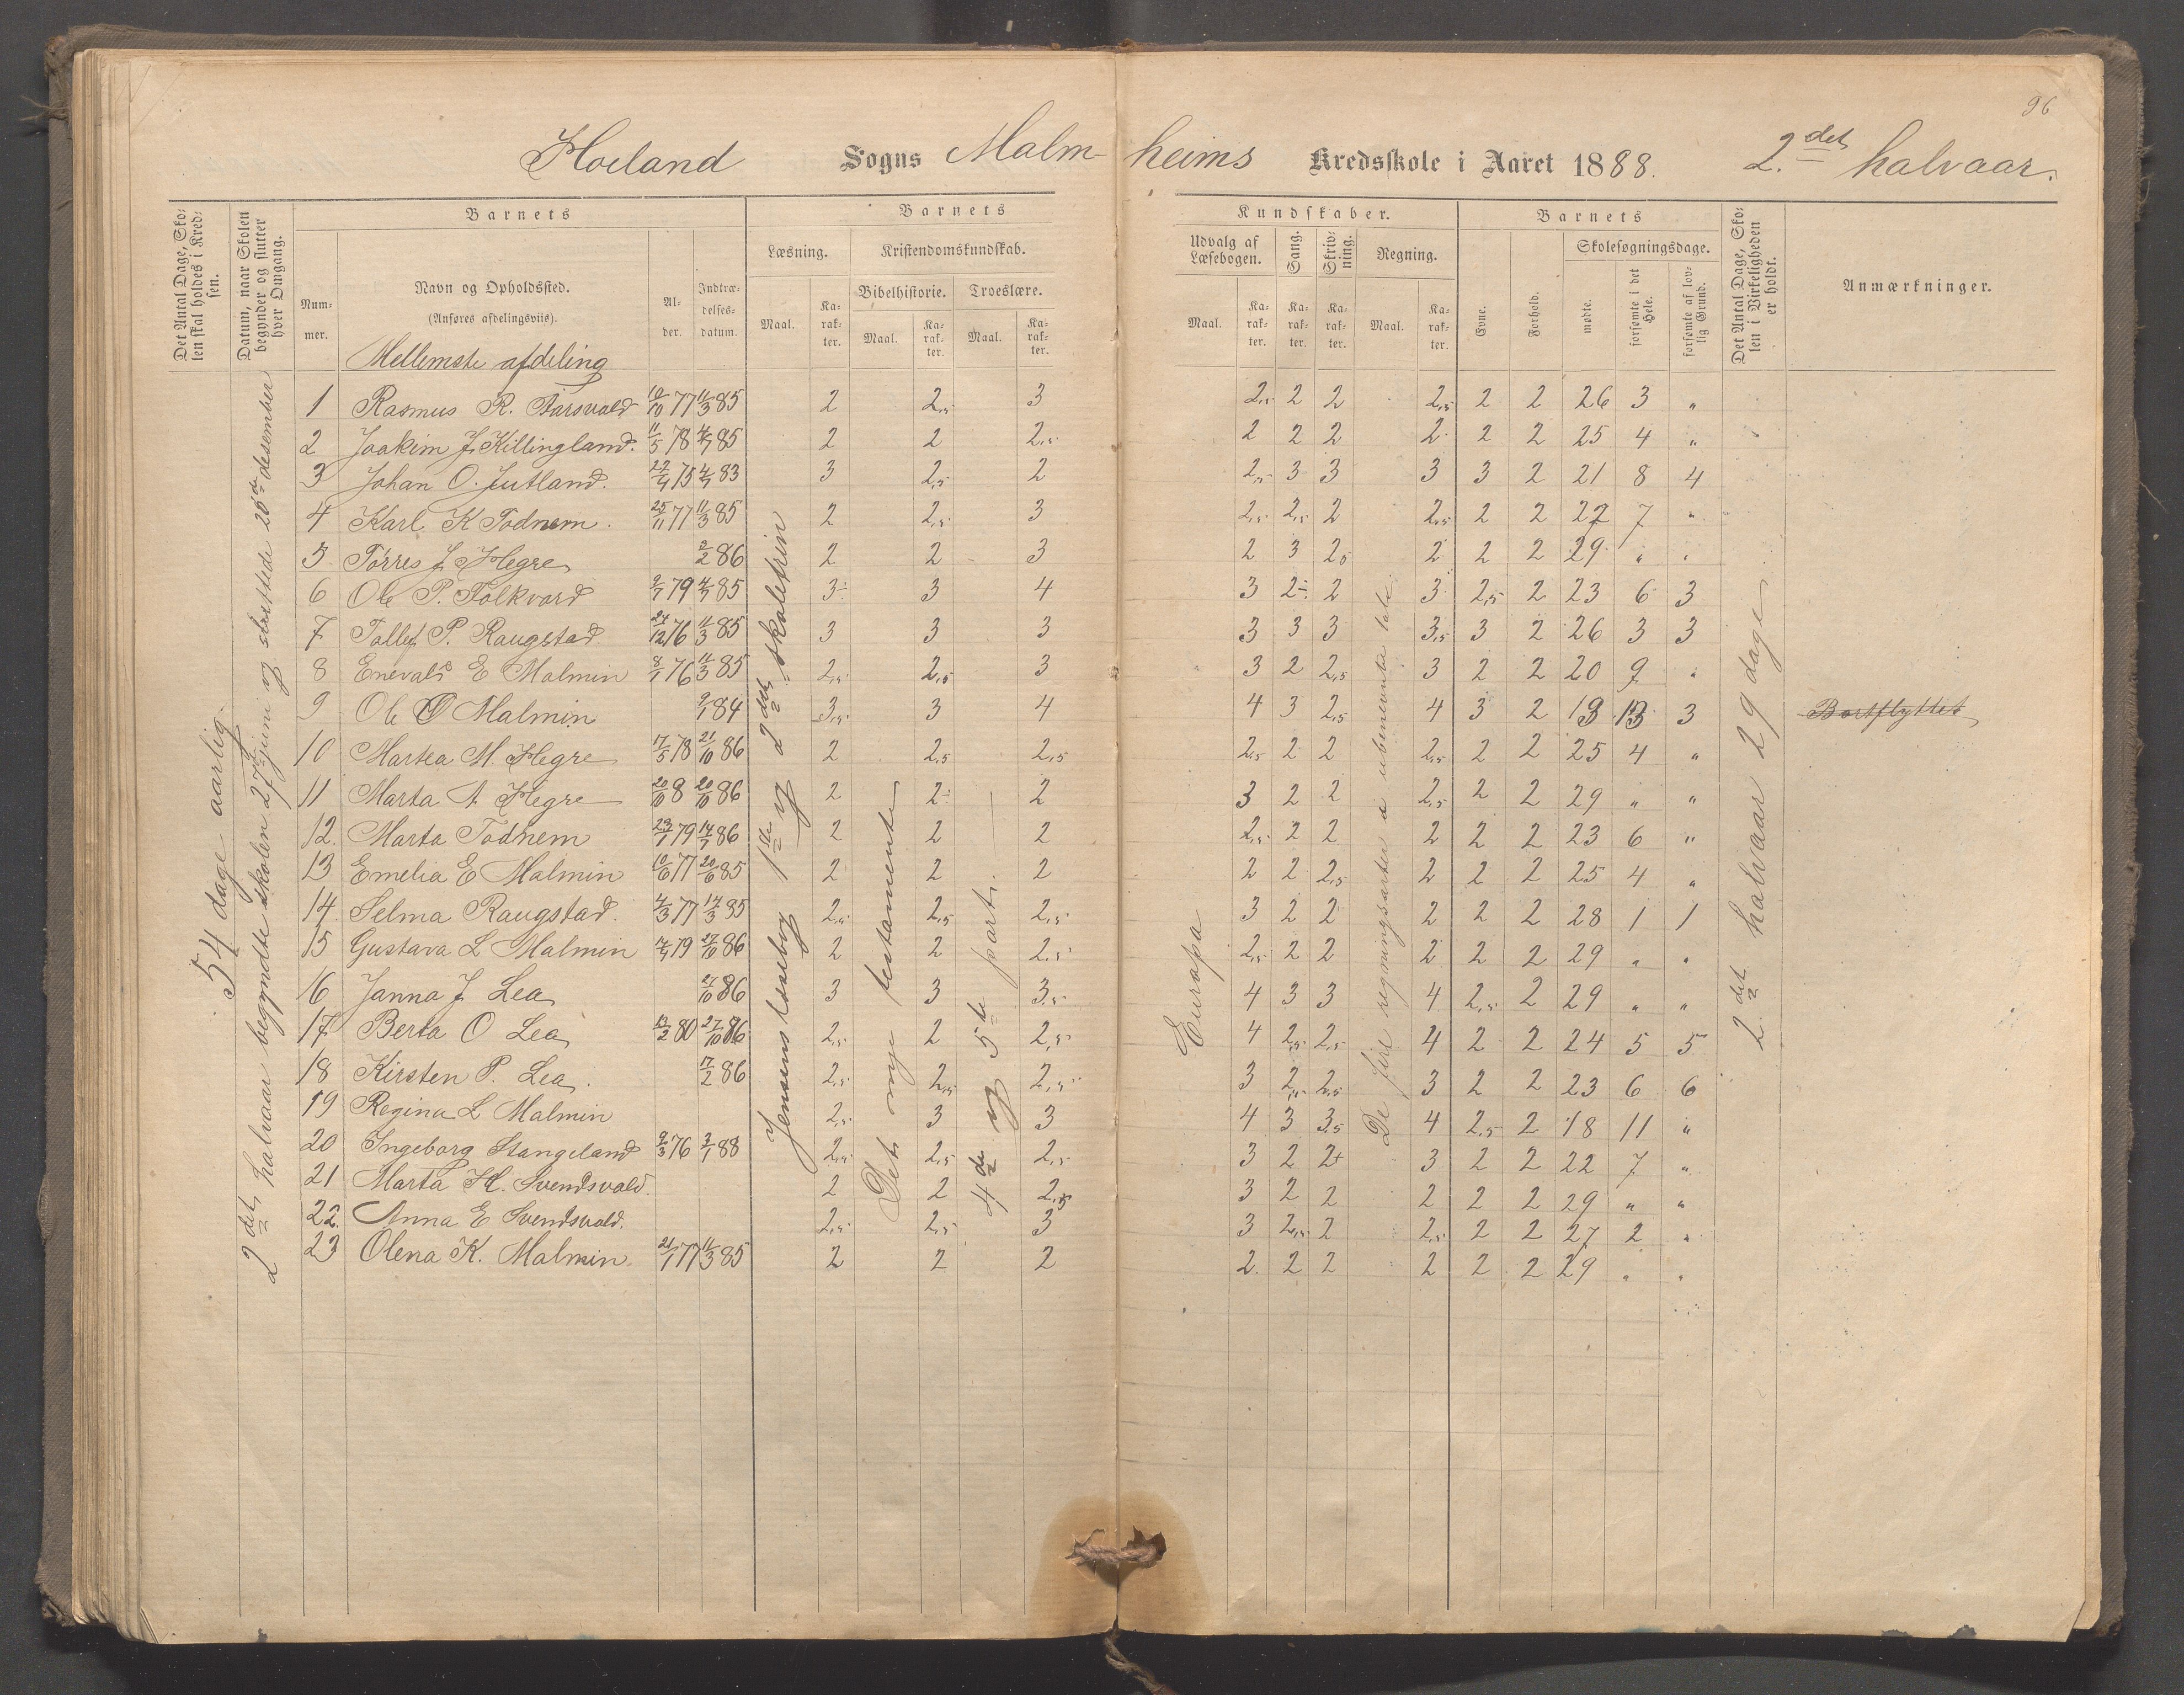 96
Høland Sogns Malm- heims Kredsskole i Aaret 1888. 2.det halvaar.
Det Antal Dage, Skolen skal holdes i Kredsen.
Datum, naar Skolen begynder og slutter hver Omgang.
Barnets
Nummer.
Navn og Opholdssted.
(Anføres afdelingsviis).
Alder.
Indtrædelsesdatum.
Barnets Kundskaber.
Læsning.
Maal.
Karakter.
Kristendomskundskab.
Bibelhistorie.
Maal.
Karakter.
Troeslære.
Maal.
Karakter.
Udvalg af Læsebogen.
Maal.
Karakter.
Sang.
Karakter.
Skrivning.
Karakter.
Regning.
Maal.
Karakter.
Barnets
Evne.
Forhold.
Skolesøgningsdage.
mødte.
forsømte i det Hele.
forsømte af lovlig Grund.
Det Antal Dage, Skolen i Virkeligheden er holdt.
Anmærkninger.
54 dage aarlig.
2det halvaar begyndte skolen 27de juni og sluttede 20de desember
Jensens læsebog 1ste og 2det skoletrin
Det nye testamente
4de og 5te part.
Europa
De fire regningsarter a ubenevnte tale
2det halvaar 29 dage
Mellemste afdeling
1 Rasmus R. Aarsvold 10/10 77 11/3 85 2 2,5 3 2,5 2 2 2,5 2 2 26 3 "
2 Joakim J. Killingland. 11/5 78 4/7 85 2 2 2,5 2 2 2 2 2 2 25 4 "
3 Johan O. Jutland. 22/4 75 4/7 83 3 2,5 2 2,5 3 3 3 3 2 21 8 4
4 Karl K Todnem. 25/11 77 11/3 85 2 2,5 3 2,5 2,5 2 2,5 2 2 22 7 "
5 Tørres J. Hegre 2/2 86 2 2 3 2 3 2,5 2 2 2 29 " "
6 Ole P. Folkvord 2/7 79 4/7 85 3÷ 3 4 3 2÷ 2 3 2,5 2 23 6 3
7 Tollef P. Raugstad. 24/12 76 11/3 85 3 3 3 3 3 3 3,5 3 2 26 3 3
8 Enevald E Malmin 8/1 76 11/3 85 2,5 2,5 3 3 2 2,5 3 2 2 20 9 "
9 Ole O Malmin 9/1 84 3,5 3 4 4 3 2,5 4 3 2 13 3 Bortflyttet
10 Martea M. Hegre 17/5 78 21/10 86 2 2,5 2,5 2,5 2 2 2,5 2 2 25 4 "
11 Marta A Hegre 20/10 8 20/10 86 2 2÷ 2 3 2 2 2,5 2 2 29 " "
12. Marta Todnem 23/1 79 14/7 86 2 2 2 2,5 2 2 2 2 2 23 6 "
13 Emelia E Malmin 10/6 77 20/6 85 2 2 2 2 2 2,5 2 2 2 25 4 "
14. Selma Raugstad. 4/3 77 14/3 85 2,5 2,5 2,5 3 2 2 2 2 2 28 1 1
15 Gustava L Malmin 79 27/10 86 2 2 2,5 2,5 2 2 2 2 2 29 " "
16 Janna J Lea 27/10 86 3 3 3,5 4 3 3 4 2,5 2 29 " "
17 Berta O Lea 13/2 80 27/10 86 2,5 2 2,5 4 2,5 2,5 4 2 2 24 5 5
18 Kirsten P. Lea. 17/2 86 2,5 2,5 2,5 3 2,5 2,5 3 2 2 23 6 6
19 Regina L Malmin 2,5 3 3 4 3 3,5 4 2,5 2 18 11 "
20 Ingeborg Stangeland 9/3 76 3/1 88 2,5 2,5 2,5 3 2 2+ 3 2 2 22 7 "
21 Marta H. Svendsvold. 2 2 2,5 3 2 2 2 2 2 29 " "
22. Anna E Svendsvold. 2,5 2,5 3 3 2,5 2 2,5 2 2 27 2 "
23 Olena K. Malmin 21/1 77 11/3 85 2 2 2 2. 2 2 2 2 2 29 " "